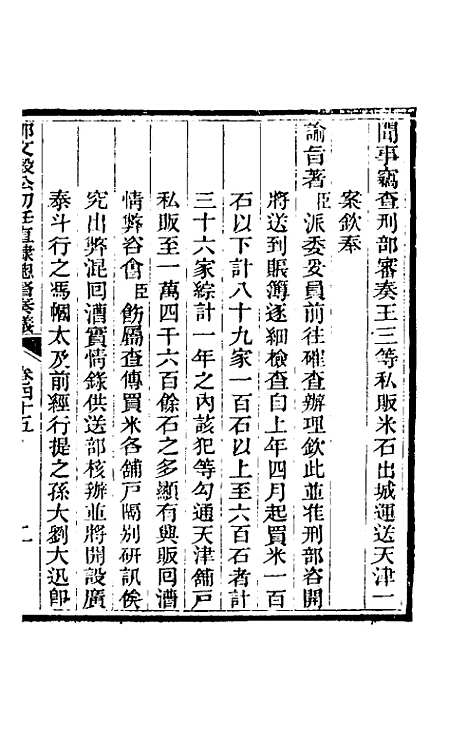 聞事竊查刑部審奏王三等私販米石出城運送天津一
案欽奉
諭旨著臣派委妥員前往確查辦理欽此並准刑部咨開
將送到賬簿逐細檢查自上年四月起買米一百
石以下計八十九家一百石以上至六百石者計
三十六家綜計一年之內該犯等勾通天津舖戶
私販至一萬四千六百餘石之多顯有興販回漕
情弊咨會臣飭屬查傳買米各舖戶隔別研訊俟
究出弊混回漕實情錄供送部核辦並將開設廣
泰斗行之馮幗太及前經行提之孫大劉大迅卽
文毅公初任直隸總督奏議
卷四十五